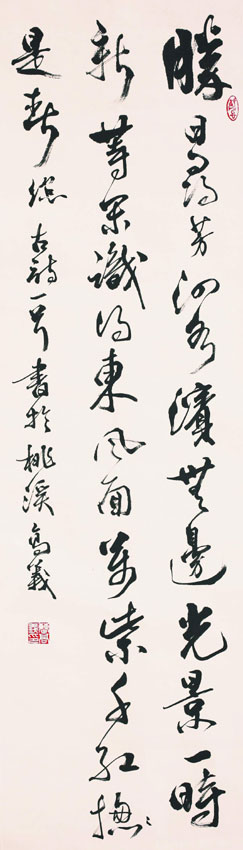 勝日尋芳泗水濱無邊光景一時
新等閒識得東風面萬紫千紅總
是春 錄古詩一首書於桃溪 高義